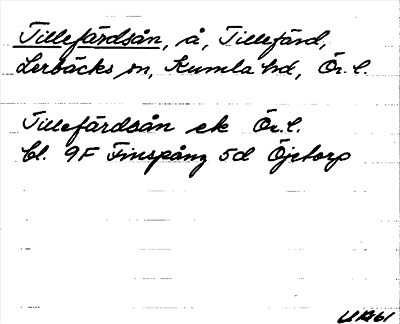 Tillefärdsån, å, Tillefärd,
Lerbäcks sn, Kumla hd, Ör. l.
Tillefärdsån ek Ör. l.
bl. 9F Finspång 5d Öjetorp
1961